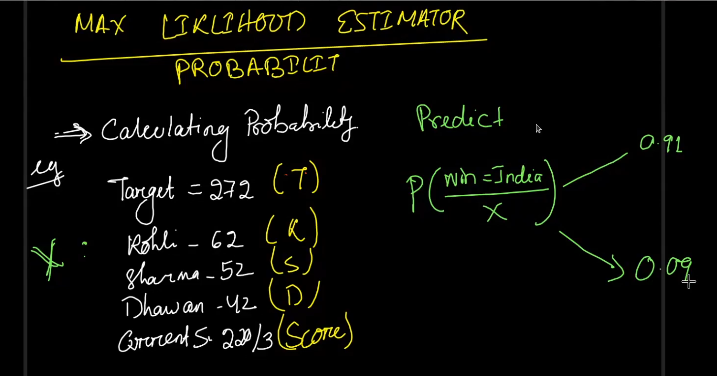 MAX LIKLIHOOD ESTIMATOR
PROBABILIT
⇒ Calculating Probability
eg
Target = 272 (T)
X :
Kohli - 62 (K)
Sharma - 52 (S)
Dhawan - 42 (D)
Current S. 220/3 (Score)
Predict
P(Win = India / X)
0.91
0.09